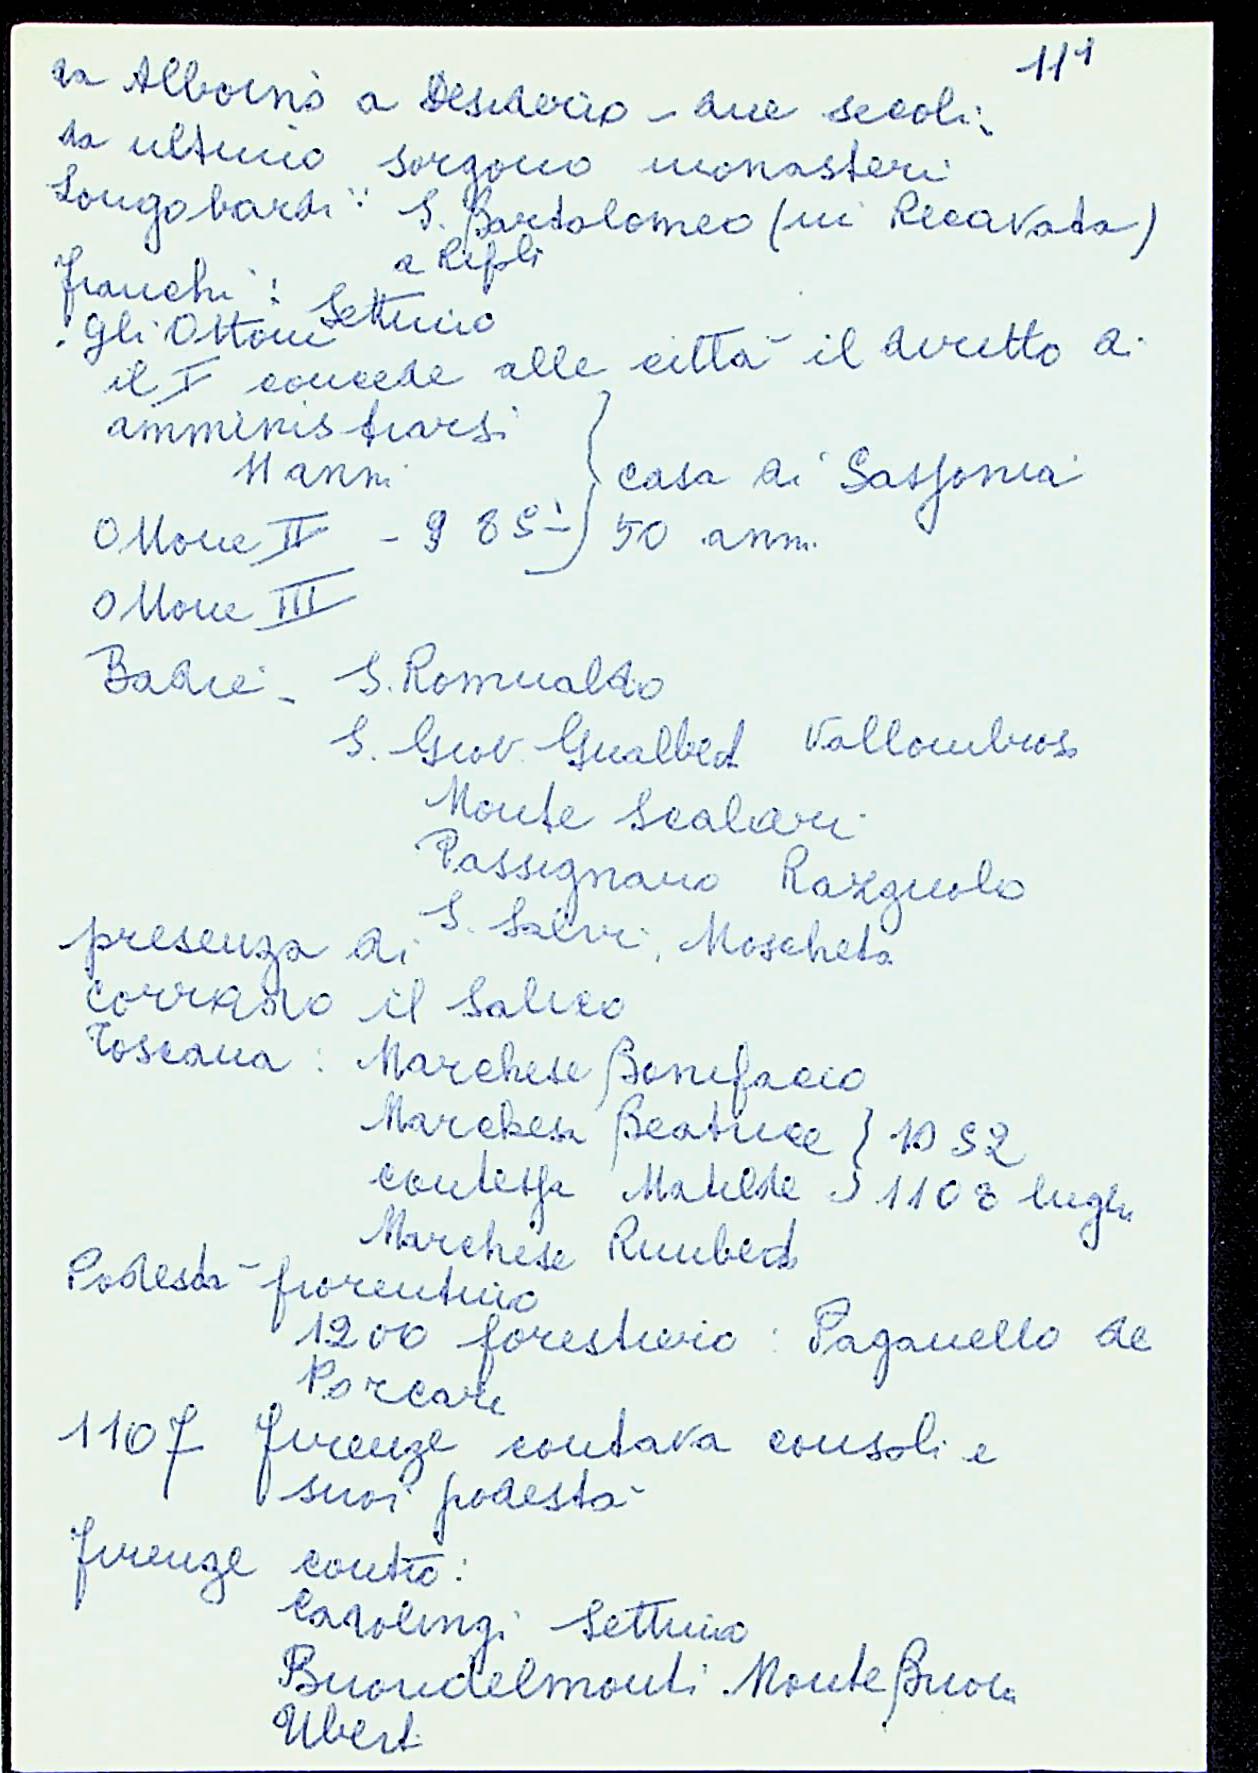 111
da Alboino a Desiderio - due secoli:
da ultimo sorgono monasteri
Longobardi: S. Bartolomeo (in Recavata)
a Ripoli
franchi: Settimo
. gli Ottoni
il I concede alle città il diritto di
amministrarsi
} casa di Sassonia
Ottone II - 983 50 anni
Ottone III
Badie - S. Romualdo
S. Giov. Gualbert Vallombrosa
Monte Scalari
Passignano Razzuolo
S. Salvi, Moscheta
presenza di
Corrado il Salico
Toscana: Marchese Bonifacio
Marchesa Beatrice } 1052
contessa Matilde } 1108 luglio
Marchese Rimbert
Podestà fiorentino
1200 forestiero: Paganello de
Porcari
1107 Firenze contava consoli e
suoi podestà
Firenze contro:
Carolingi Settimo
Buondelmonti. Monte Buoni
Uberti